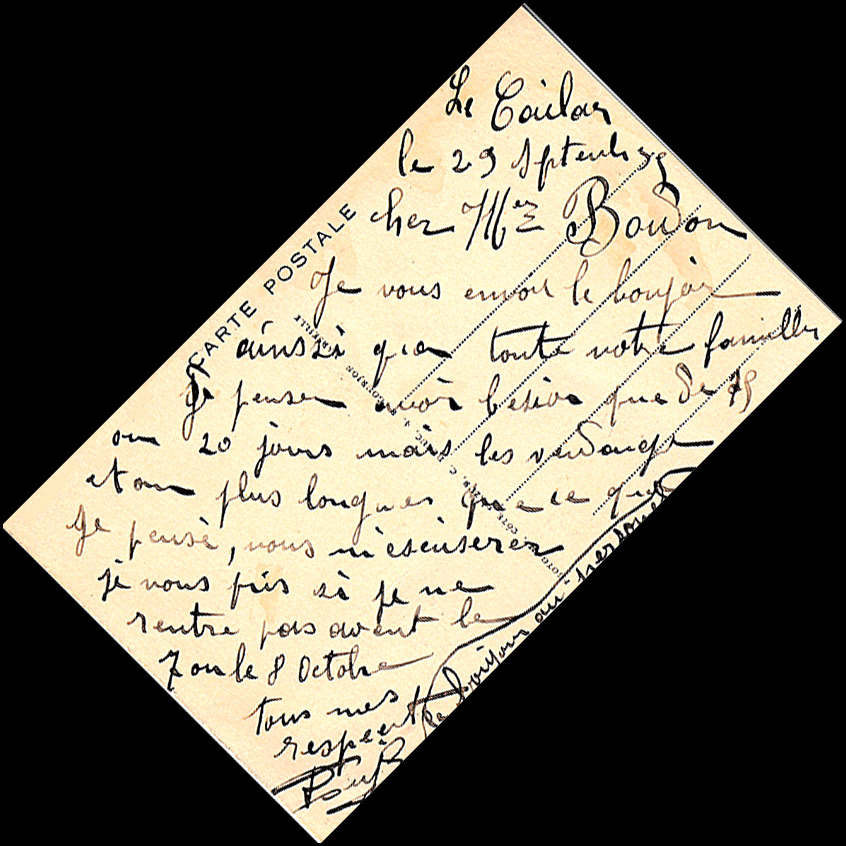 Le Cailar
le 29 Septembre
cher Mr Boudon
Je vous envoi le bonjour
ainssi que toute votre famille
Je penser avoir besion que de 15
ou 20 jours mais les vendange
etan plus longues que ce que
Je pensé, vous m'escuserez
je vous pris si je ne
rentre pas avent le
7 ou le 8 Octobre
tous mes
respect
le bonjour au personel
CARTE POSTALE